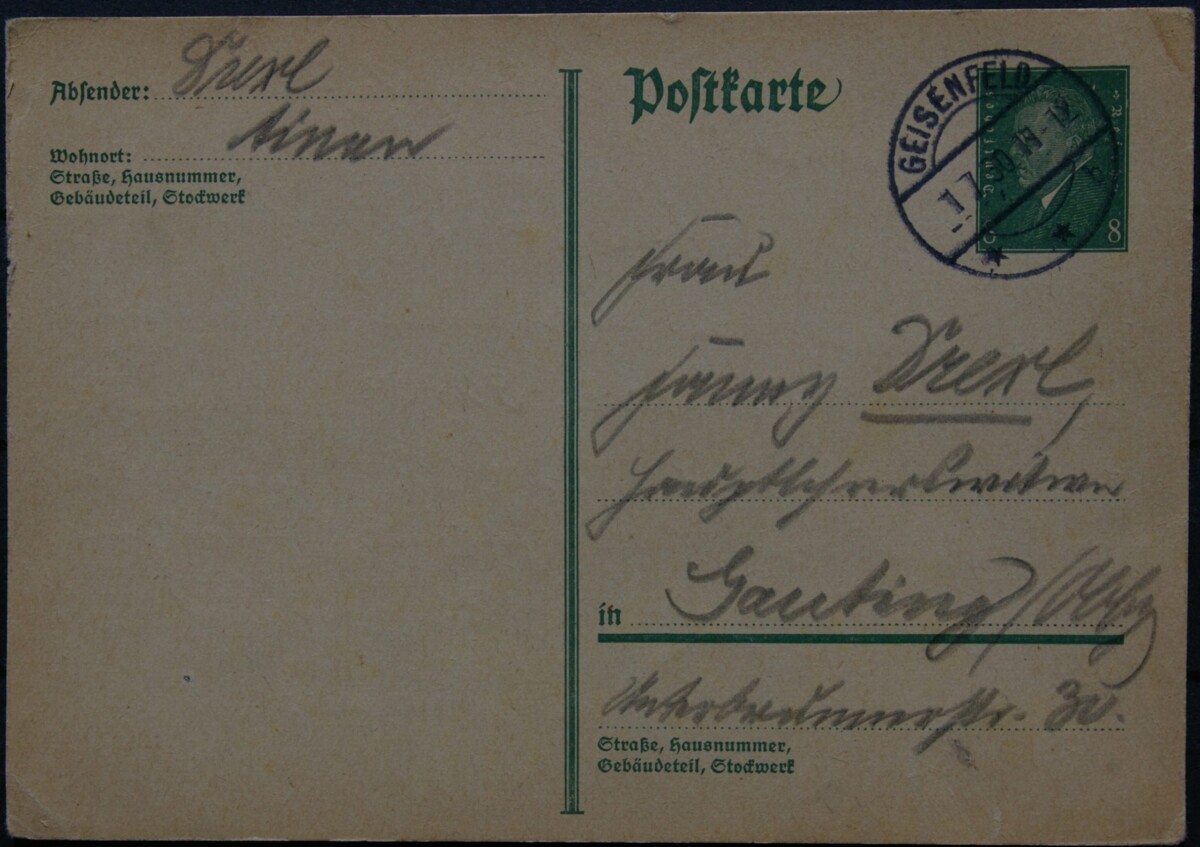 Absender: Drexl
Wohnort: Ainau
Straße, Hausnummer,
Gebäudeteil, Stockwerk
Postkarte
GEISENFELD
1.7.30
8 8
Frau
Fanny Drexl,
Hauptlehrerswitwe
in Gauting/Obby
Unterbrunnerstr. 30.
Straße, Hausnummer,
Gebäudeteil, Stockwerk